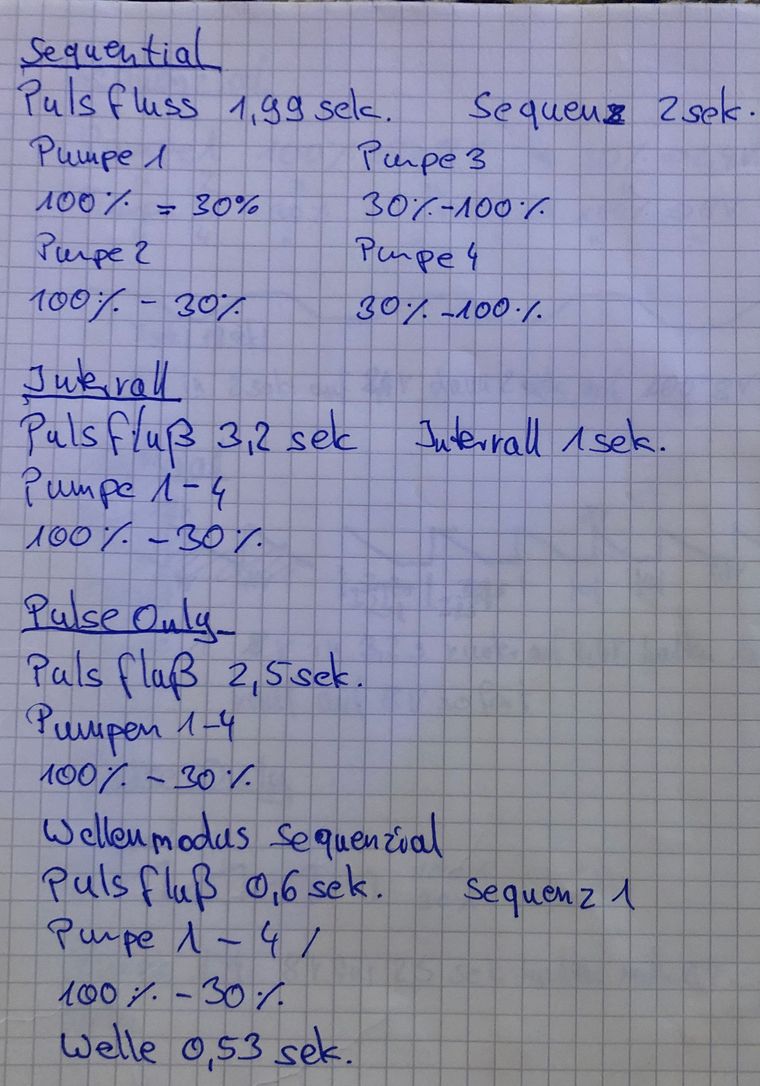 Sequential
Pulsfluss 1,99 sek. Sequenz 2 sek.
Pumpe 1 Pumpe 3
100% = 30% 30% - 100%
Pumpe 2 Pumpe 4
100% - 30% 30% - 100%
Intervall
Pulsfluß 3,2 sek Intervall 1 sek.
Pumpe 1 - 4
100% - 30%
Pulse Only
Pulsfluß 2,5 sek.
Pumpen 1 - 4
100% - 30%
Wellenmodus Sequenzial
Pulsfluß 0,6 sek. Sequenz 1
Pumpe 1 - 4 /
100% - 30%
Welle 0,53 sek.